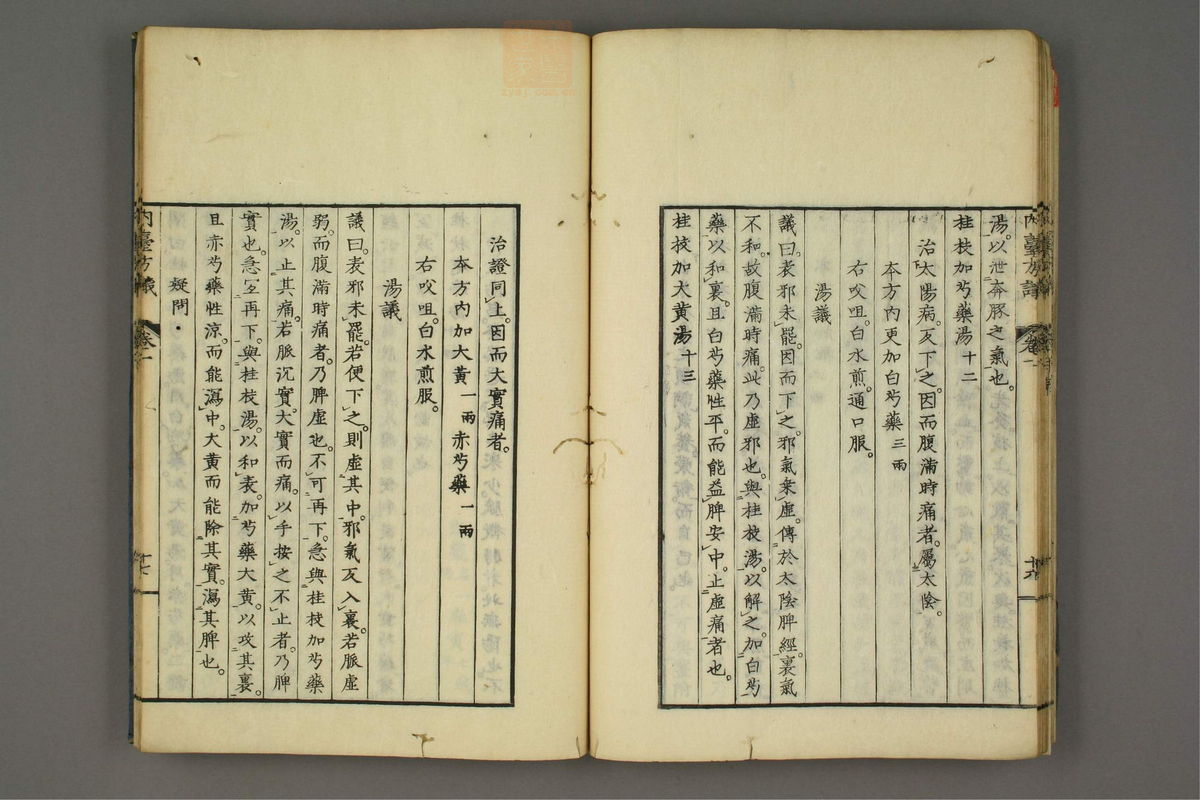 湯。以泄奔豚之氣也。
桂枝加芍藥湯十二
治太陽病。反下之。因而腹滿時痛者。屬太陰。
本方內更加白芍藥三兩
右㕮咀。白水煎。通口服。
湯議
議曰。表邪未罷。因而下之。邪氣乗虛。傳於太陰脾經。裏氣
不和。故腹滿時痛。此乃虛邪也。與桂枝湯。以解之。加白芍
藥以和裏。且白芍藥性平。而能益脾安中。止虛痛者也。
桂枝加大黄湯十三
治證同上。因而大實痛者。
本方內加大黄一兩赤芍藥一兩
右㕮咀。白水煎服。
湯議
議曰。表邪未罷。若便下之。則虛其中。邪氣反入裏。若脈虛
弱。而腹滿時痛者。乃脾虛也。不可再下。急與桂枝加芍藥
湯。以止其痛。若脈沉實。大實而痛。以手按之不止者。乃脾
實也。急宜再下。與桂枝湯。以和表。加芍藥大黄。以攻其裏。
且赤芍藥性涼。而能瀉中。大黄而能除其實。瀉其脾也。
疑問
內臺方議 卷一
zysj.com.cn